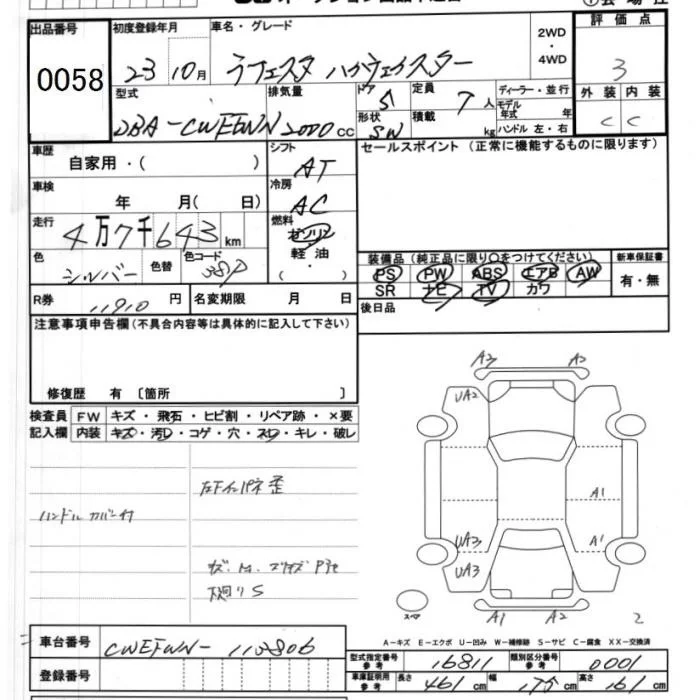 出品番号 初度登録年月 車名・グレード 2WD・4WD 評価点
0058 23 10月 ラフェスタ ハイウェイスター 3
型式 排気量 ドア 5 定員 7人 ディーラー・並行 外装 内装
DBA-CWEFWN 2000cc 形状 SW 積載 kg モデル年式 年 ハンドル 左・右 C C
車歴 自家用・( ) シフト AT セールスポイント (正常に機能するものに限ります)
車検 年 月( 日) 冷房 AC
走行 4万7千643km 燃料 ガソリン 軽油・( )
色 シルバー 色替 色コード 38P 装備品 (純正品に限り○をつけてください) 新車保証書
PS PW ABS エアB AW 有・無
SR ナビ TV カワ
R券 11910円 名変期限 月 日 後日品
注意事項申告欄(不具合内容等は具体的に記入して下さい)
修復歴 有 〔箇所 〕
検査員 FW キズ・飛石・ヒビ割・リペア跡・×要
記入欄 内装 キズ・汚レ・コゲ・穴・スレ・キレ・破レ
ハンドルカバー付
左下インパネ歪
下廻りS
A2 A2
UA2
A1
UA3 A1
UA3
A1 A2
スペア 2
A-キズ E-エクボ U-凹み W-補修跡 S-サビ C-腐食 XX-交換済
車台番号 CWEFWN-113806 型式指定番号 参考 16811 類別区分番号 参考 0001
登録番号 車庫証明用 参考 長さ 461cm 幅 175cm 高さ 161cm